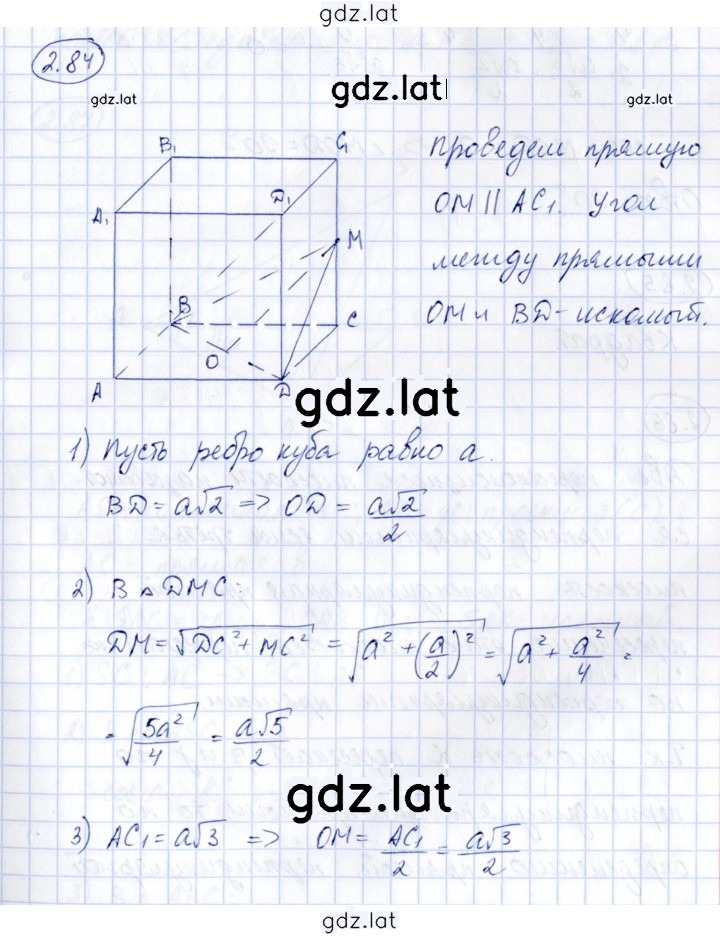 gdz.lat
2.84
gdz.lat
gdz.lat
gdz.lat
B₁
C₁
A₁
D₁
M
B
C
O
A
D
проведем прямую
OM || AC₁. Угол
между прямыми
OM и BD - искомый.
gdz.lat
1) Пусть ребро куба равно a.
BD = a√2 => OD = a√2/2
2) В △ DMC:
DM = √(DC² + MC²) = √(a² + (a/2)²) = √(a² + a²/4) =
= √(5a²/4) = a√5/2
gdz.lat
3) AC₁ = a√3 => OM = AC₁/2 = a√3/2
gdz.lat